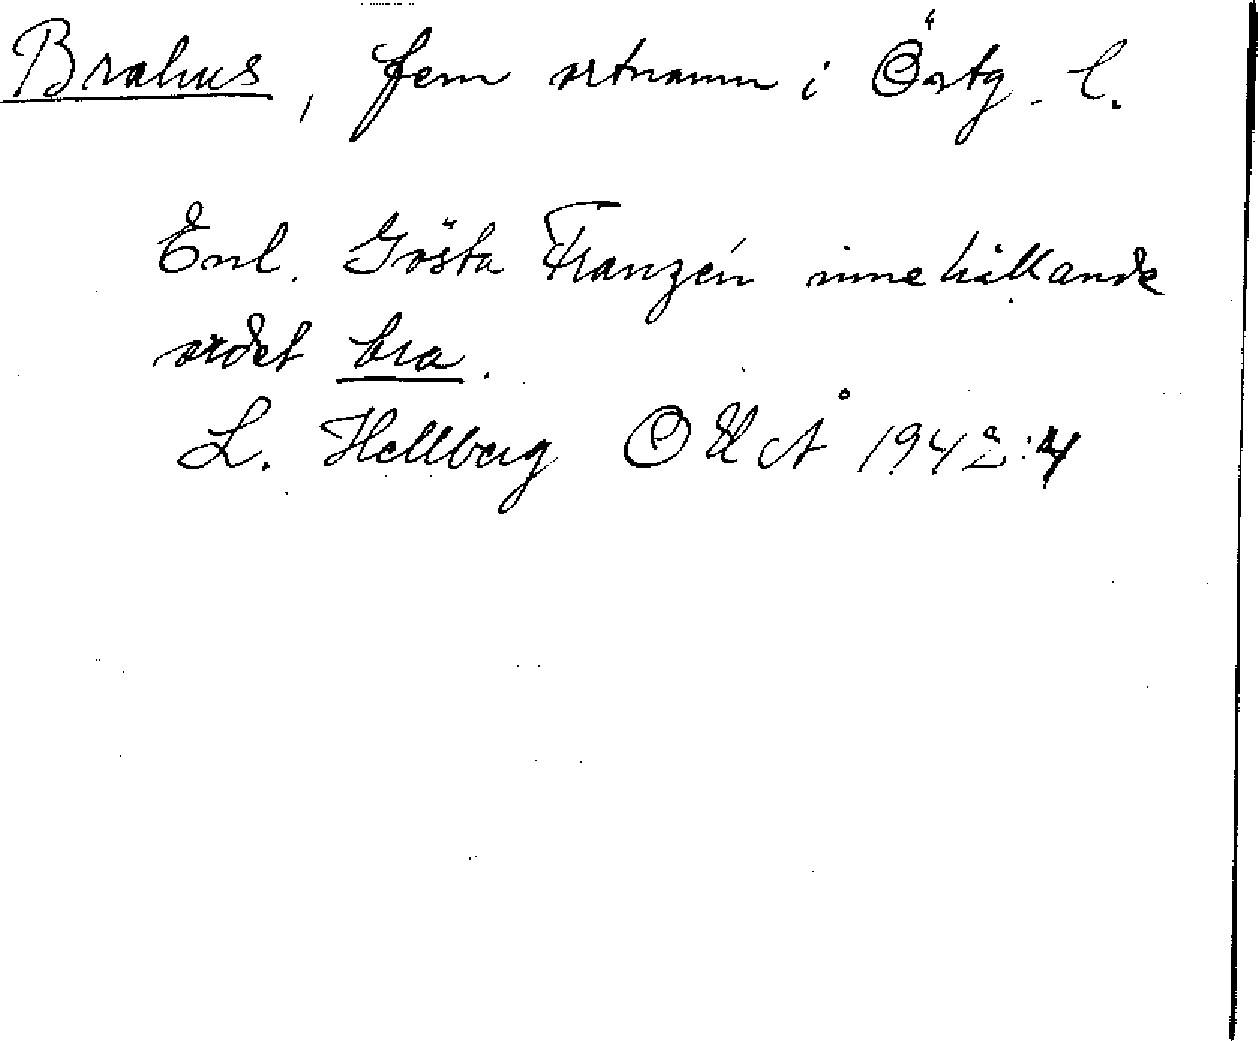 Brahus, fem ortnamn i Östg. l.
Enl. Gösta Franzén innehållande
ordet bra.
L. Hellberg OUÅ 1942:4